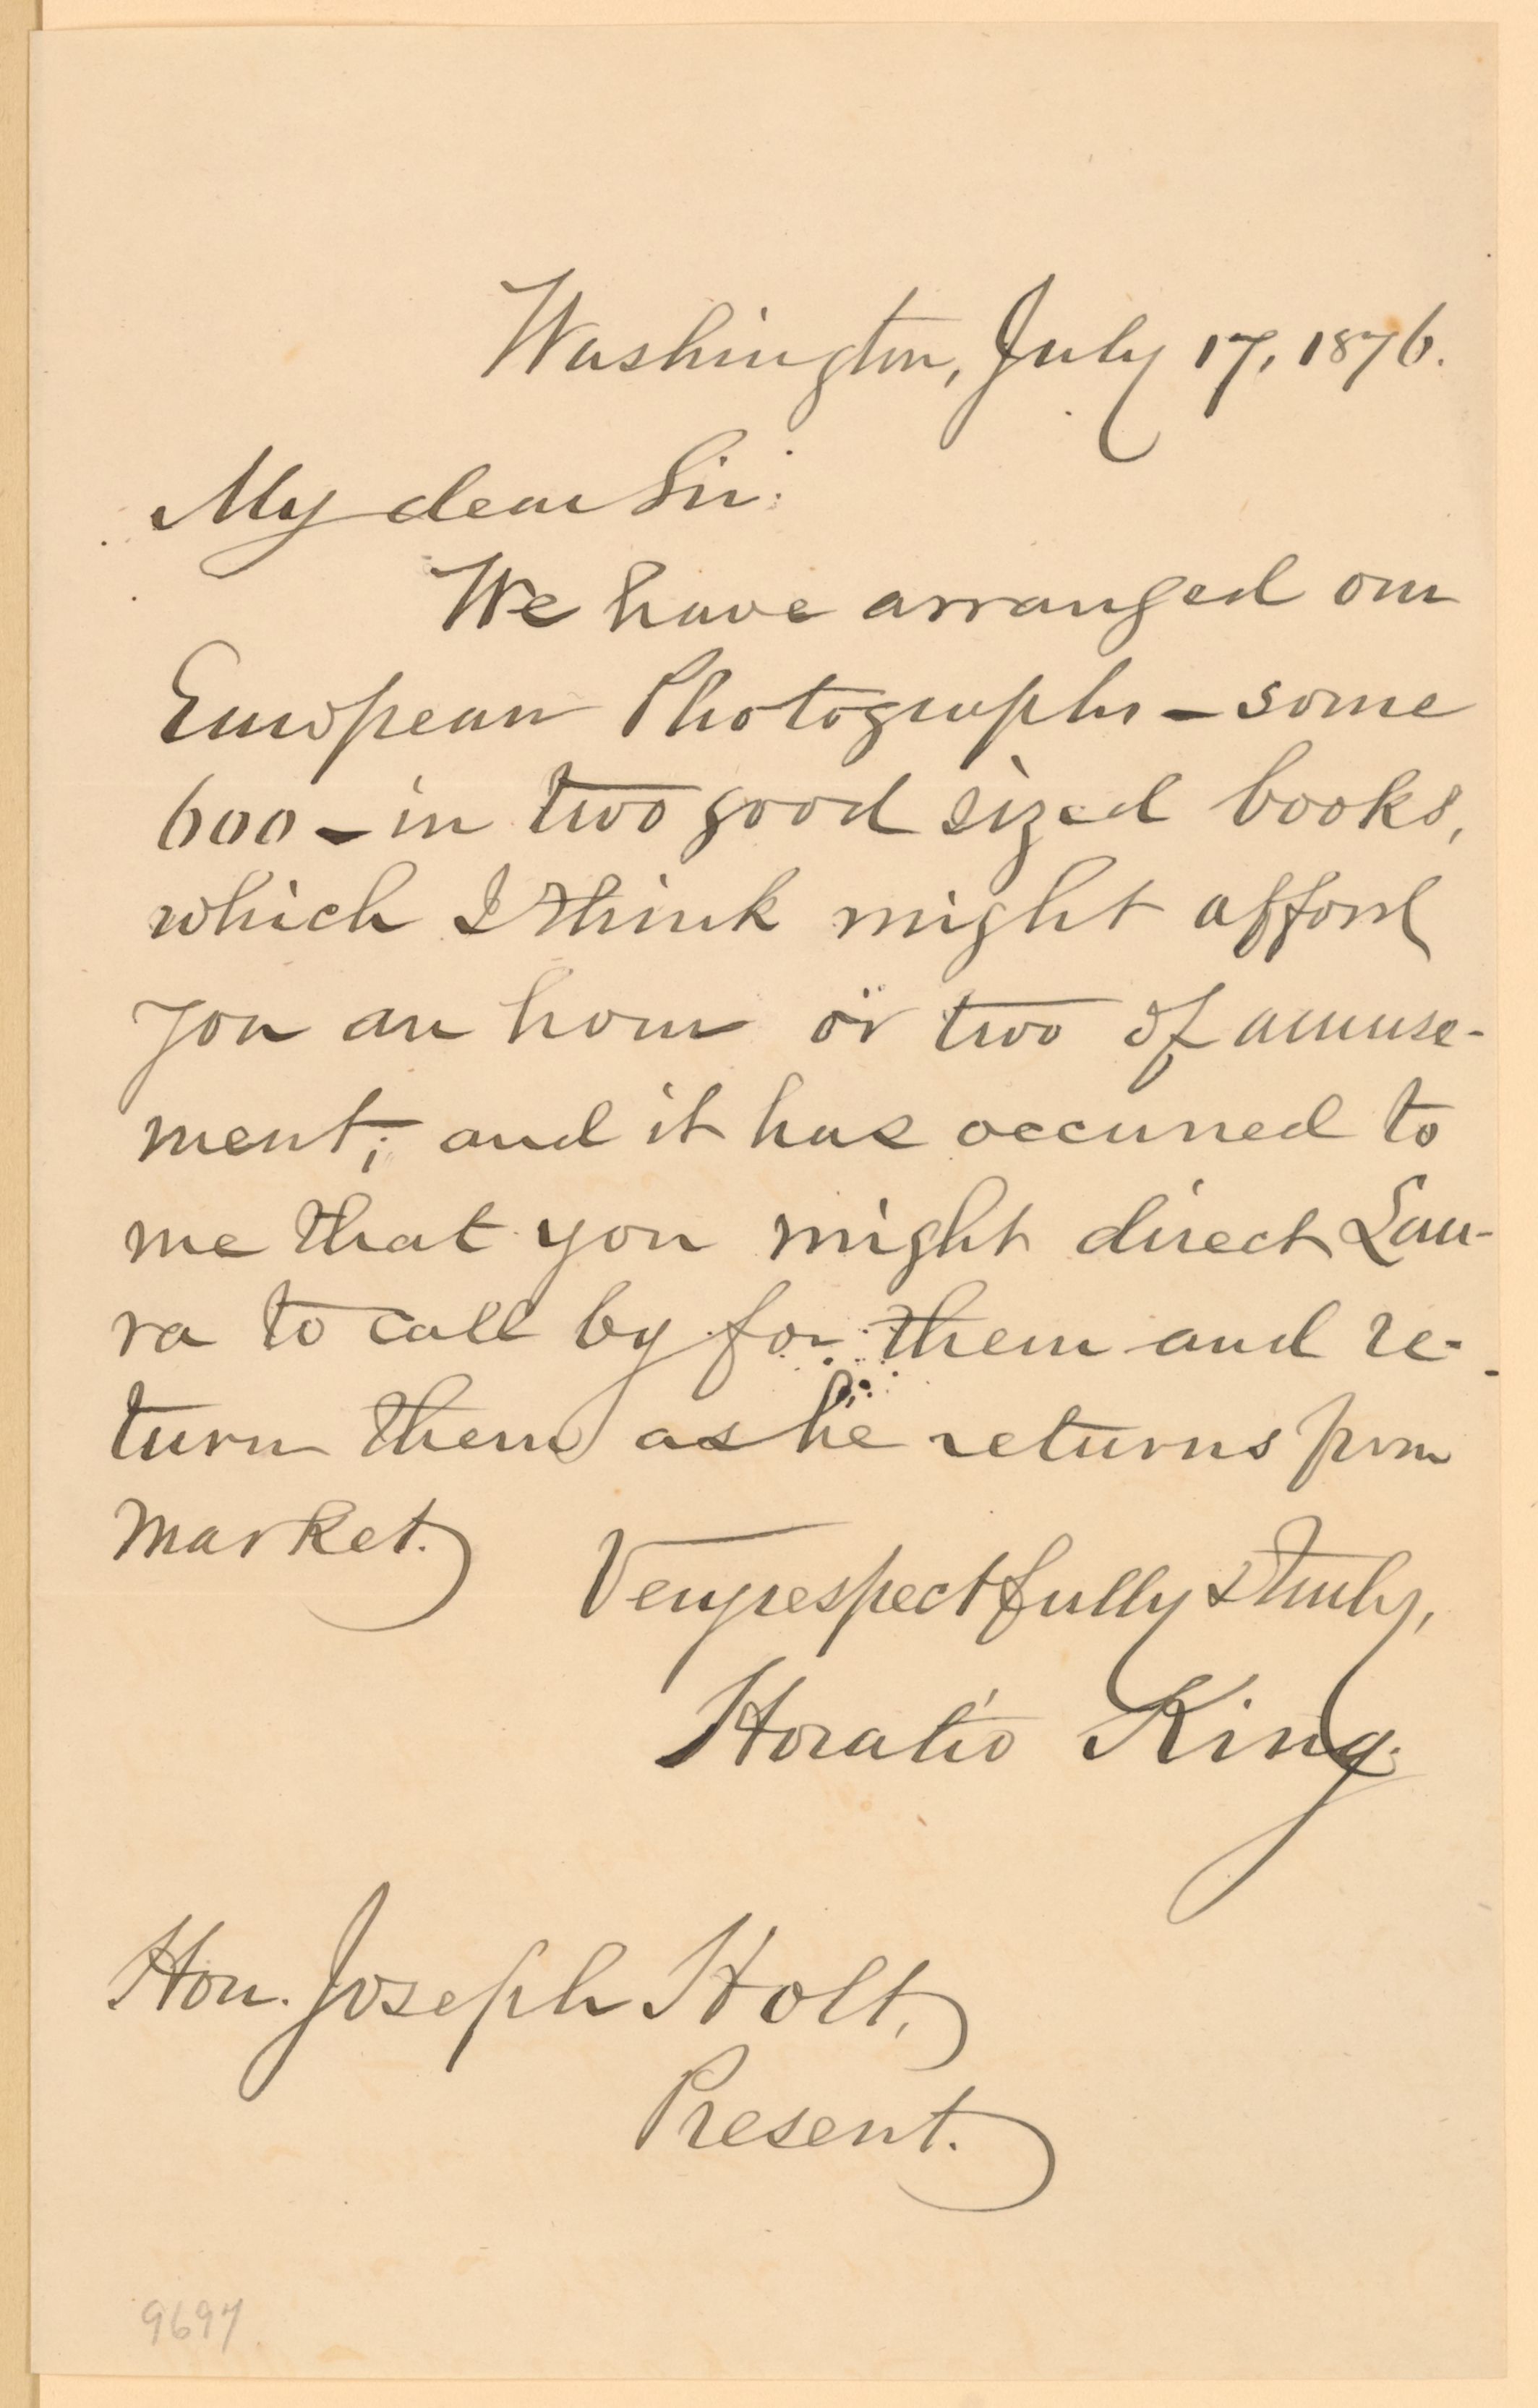 Washington, July 17, 1876.
My dear Sir:
We have arranged our
European Photographs – some
600 – in two good sized books,
which I think might afford
you an hour or two of amuse-
ment; and it has occurred to
me that you might direct Lau-
ra to call by for them and re-
turn them as he returns from
market.
Very respectfully & truly,
Horatio King.
Hon. Joseph Holt,
Present.
9697